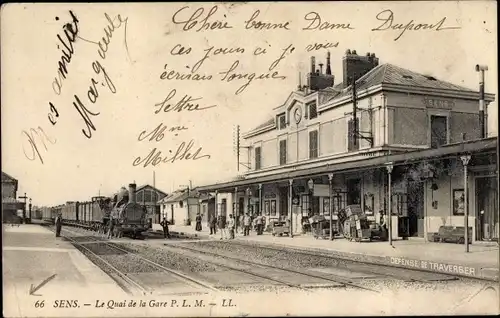 Chère bonne Dame Dupont
ces jours ci je vous
écrirais longues
Lettre
Mme
Millet
mes amitiés
Marguerite
SENS
DÉFENSE DE TRAVERSER
66 SENS. - Le Quai de la Gare P. L. M. - LL.